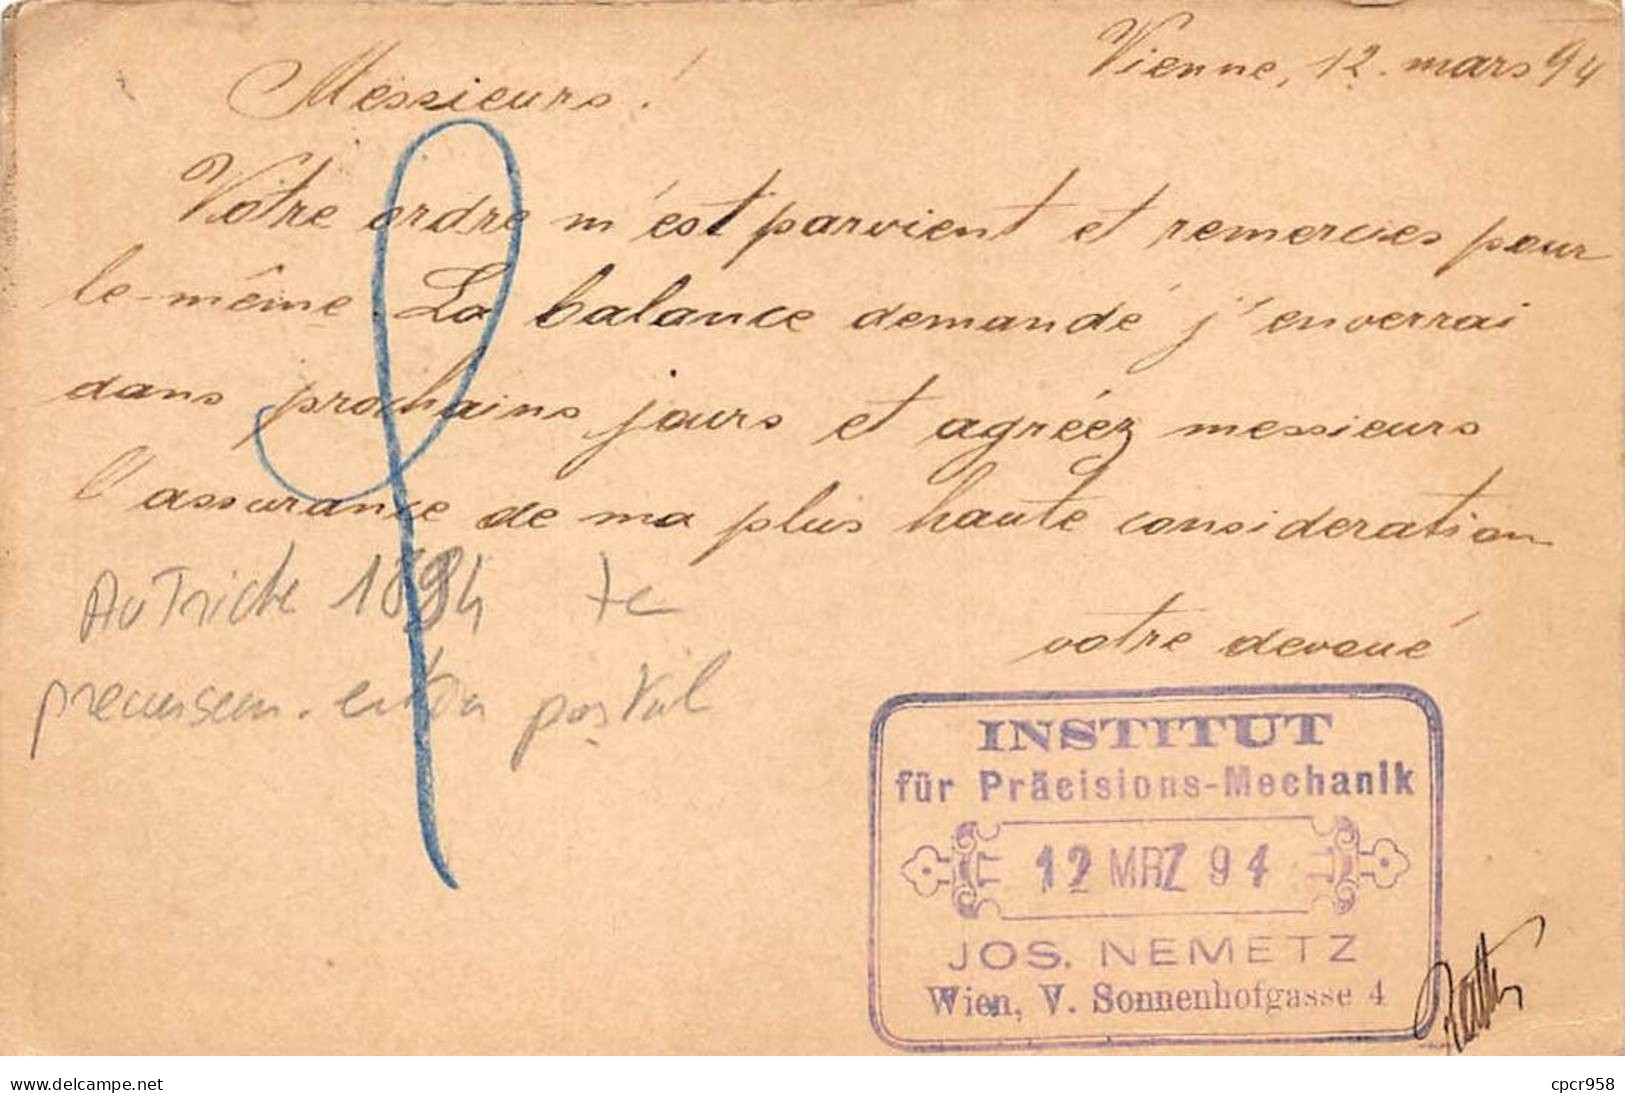 Vienne, 12. mars 94
Messieurs!
Votre ordre m'est parvient et remercies pour
le-même. La balance demandé j'enverrai
dans prochains jours et agréez messieurs
l'assurance de ma plus haute consideration
votre devoué
Autriche 1894 te
precurseur. entier postal
INSTITUT
für Präcisions-Mechanik
12 MRZ 94
JOS. NEMETZ
Wien, V. Sonnenhofgasse 4
delcampe.net
cpcr958